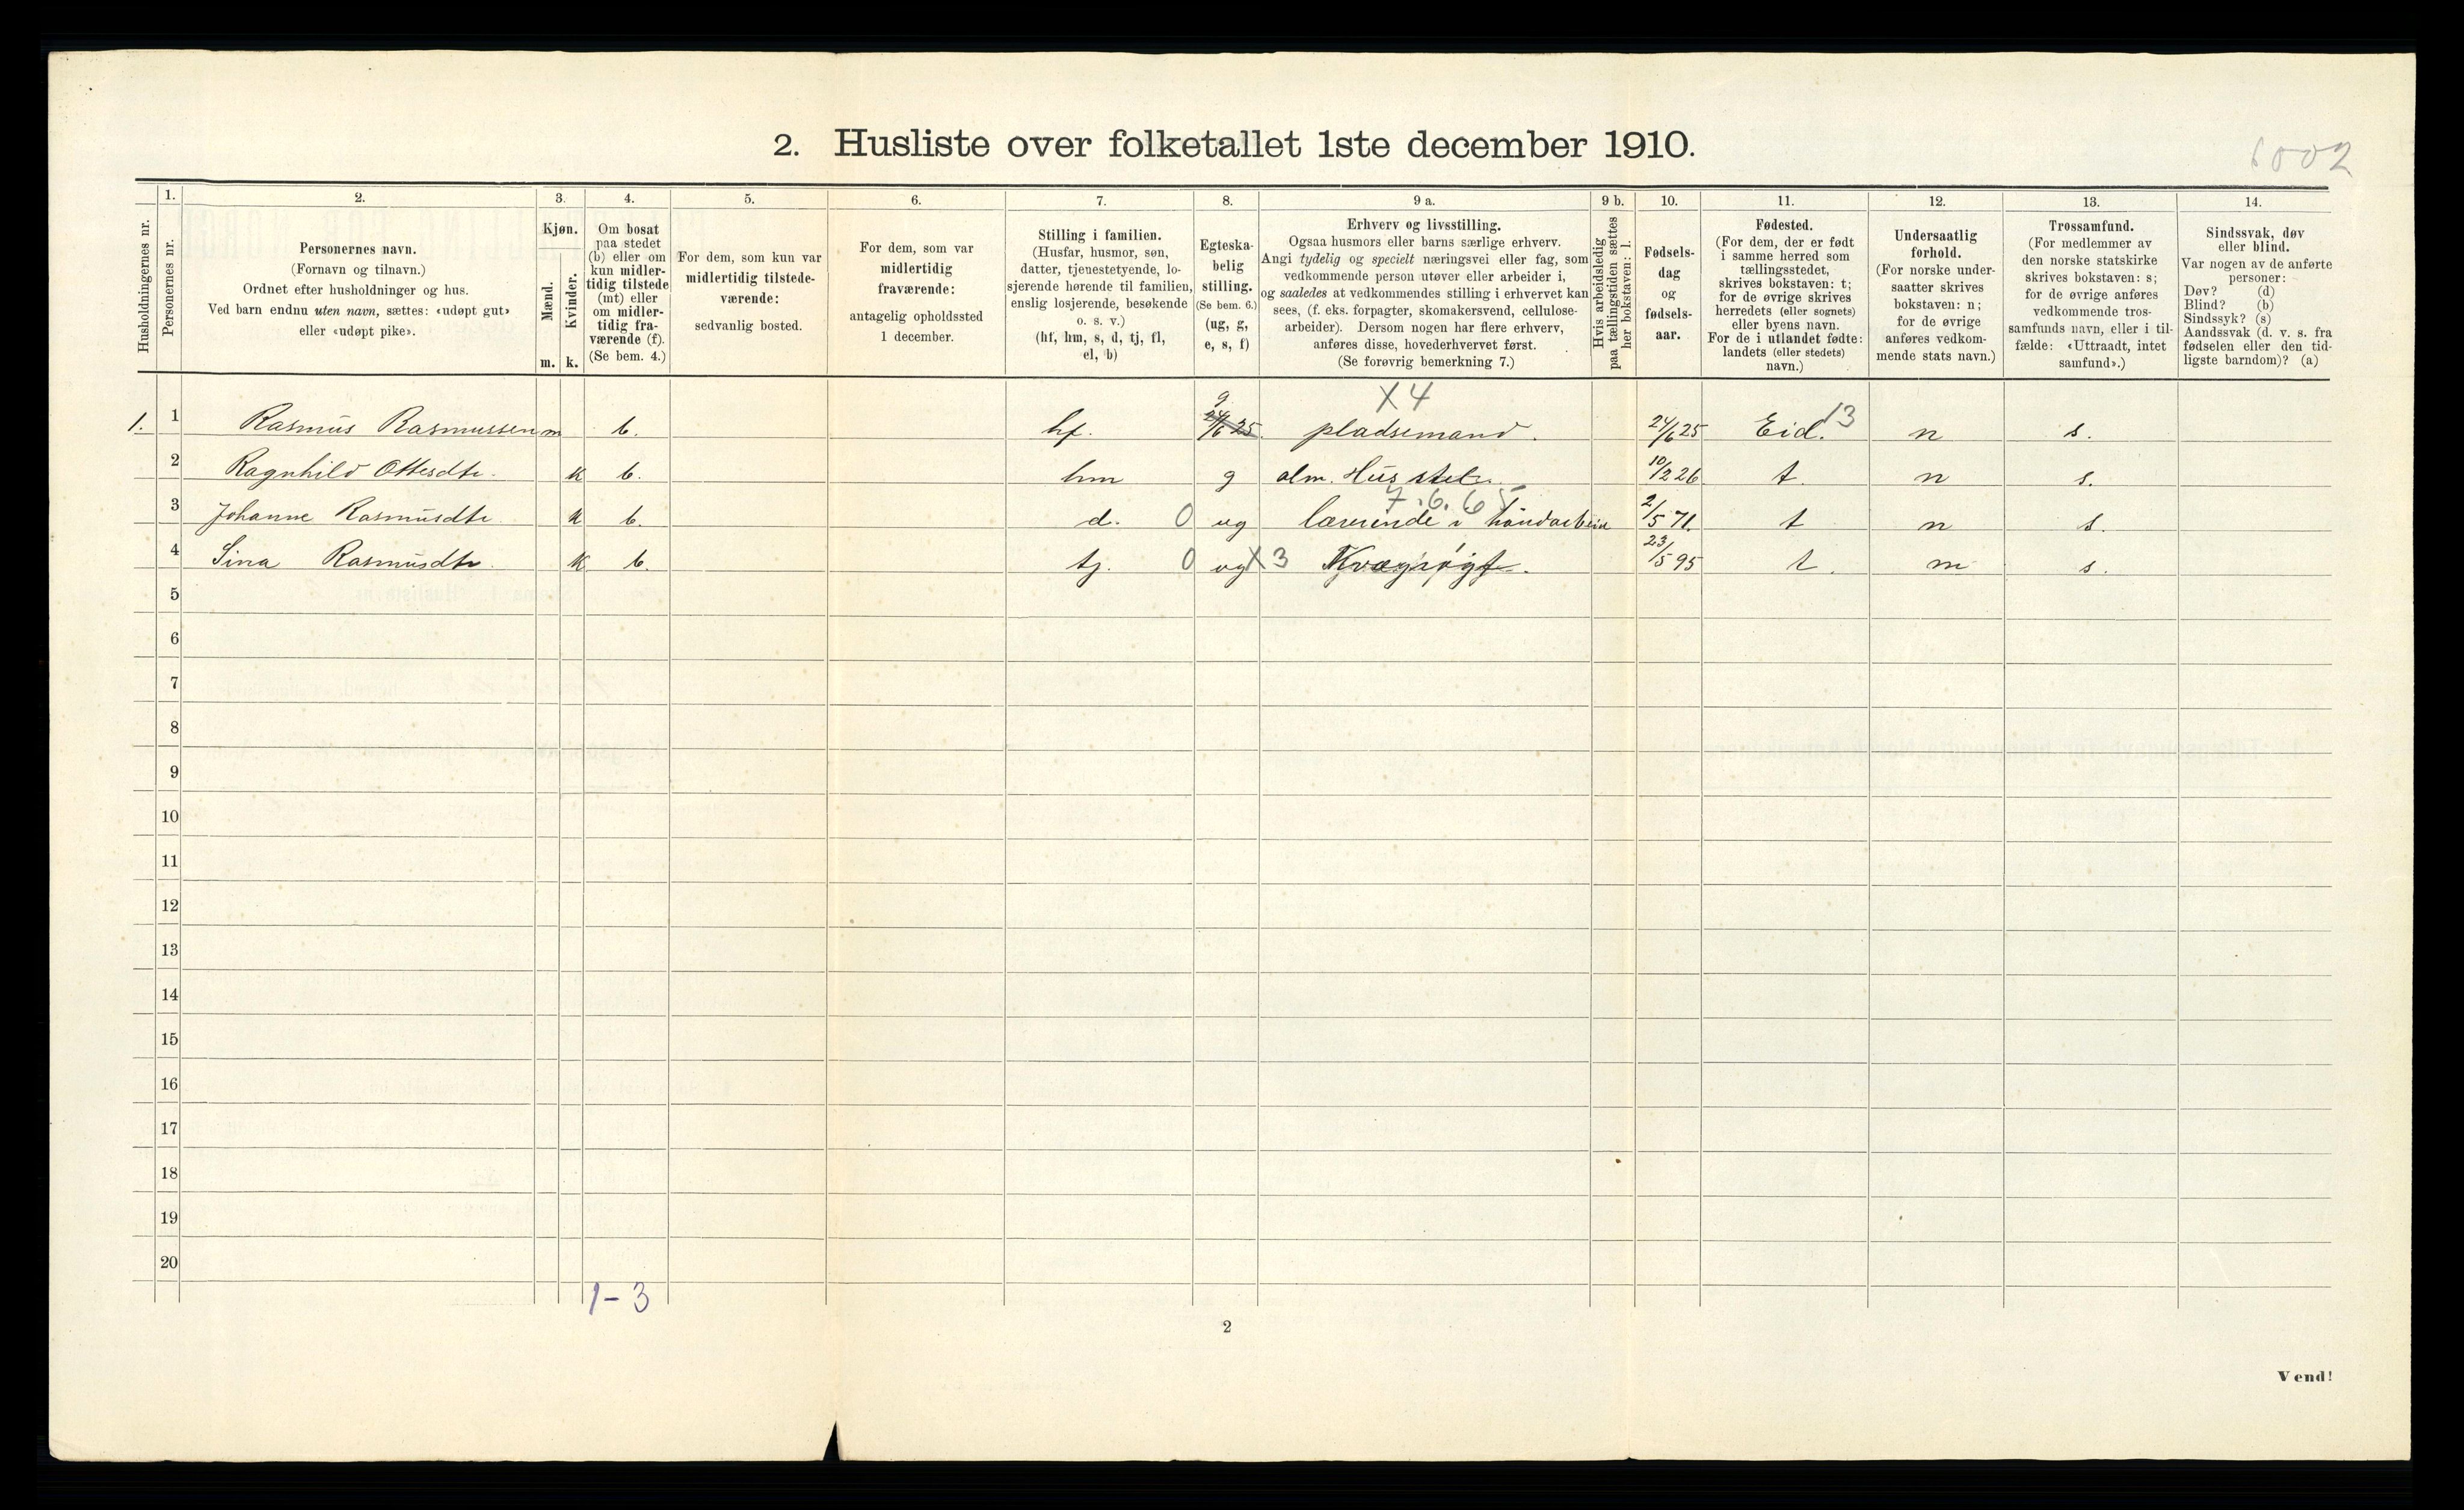 2. Husliste over folketallet 1ste december 1910.
6002
Husholdningernes nr.
1.
Personernes nr.
2.
Personernes navn.
(Fornavn og tilnavn.)
Ordnet efter husholdninger og hus.
Ved barn endnu uten navn, sættes: «udøpt gut»
eller «udøpt pike».
3.
Kjøn.
Mænd.
Kvinder.
m. k.
4.
Om bosat
paa stedet
(b) eller om
kun midler-
tidig tilstede
(mt) eller
om midler-
tidig fra-
værende (f).
(Se bem. 4.)
5.
For dem, som kun var
midlertidig tilstede-
værende:
sedvanlig bosted.
6.
For dem, som var
midlertidig
fraværende:
antagelig opholdssted
1 december.
7.
Stilling i familien.
(Husfar, husmor, søn,
datter, tjenestetyende, lo-
sjerende hørende til familien,
enslig losjerende, besøkende
o. s. v.)
(hf, hm, s, d, tj, fl,
el, b)
8.
Egteska-
belig
stilling.
(Se bem. 6.)
(ug, g,
e, s, f)
9 a.
Erhverv og livsstilling.
Ogsaa husmors eller barns særlige erhverv.
Angi tydelig og specielt næringsvei eller fag, som
vedkommende person utøver eller arbeider i,
og saaledes at vedkommendes stilling i erhvervet kan
sees, (f. eks. forpagter, skomakersvend, cellulose-
arbeider). Dersom nogen har flere erhverv,
anføres disse, hovederhvervet først.
(Se forøvrig bemerkning 7.)
9 b.
Hvis arbeidsledig
paa tællingstiden sættes
her bokstaven: l.
10.
Fødsels-
dag
og
fødsels-
aar.
11.
Fødested.
(For dem, der er født
i samme herred som
tællingsstedet,
skrives bokstaven: t;
for de øvrige skrives
herredets (eller sognets)
eller byens navn.
For de i utlandet fødte:
landets (eller stedets)
navn.)
12.
Undersaatlig
forhold.
(For norske under-
saatter skrives
bokstaven: n;
for de øvrige
anføres vedkom-
mende stats navn.)
13.
Trossamfund.
(For medlemmer av
den norske statskirke
skrives bokstaven: s;
for de øvrige anføres
vedkommende tros-
samfunds navn, eller i til-
fælde: «Uttraadt, intet
samfund».)
14.
Sindssvak, døv
eller blind.
Var nogen av de anførte
personer:
Døv? (d)
Blind? (b)
Sindssyk? (s)
Aandssvak (d. v. s. fra
fødselen eller den tid-
ligste barndom)? (a)
g X 4
1. 1 Rasmus Rasmussen m b. hf. 24/6 25. pladsemand. 24/6 25 Eid. 13 n s.
2 Ragnhild Ottesdtr. k b. hm g alm. Husstel. 10/2 26 t. n s.
7.6.65
3 Johanne Rasmusdtr k b. d. 0 ug lærerinde i håndarbeide 2/5 71. t n s.
4 Sina Rasmusdtr. k b. tj. 0 ug X3 Kvægrøgt. 23/5 95 t. n s.
5
6
7
8
9
10
11
12
13
14
15
16
17
18
19
20
1-3
2
Vend!